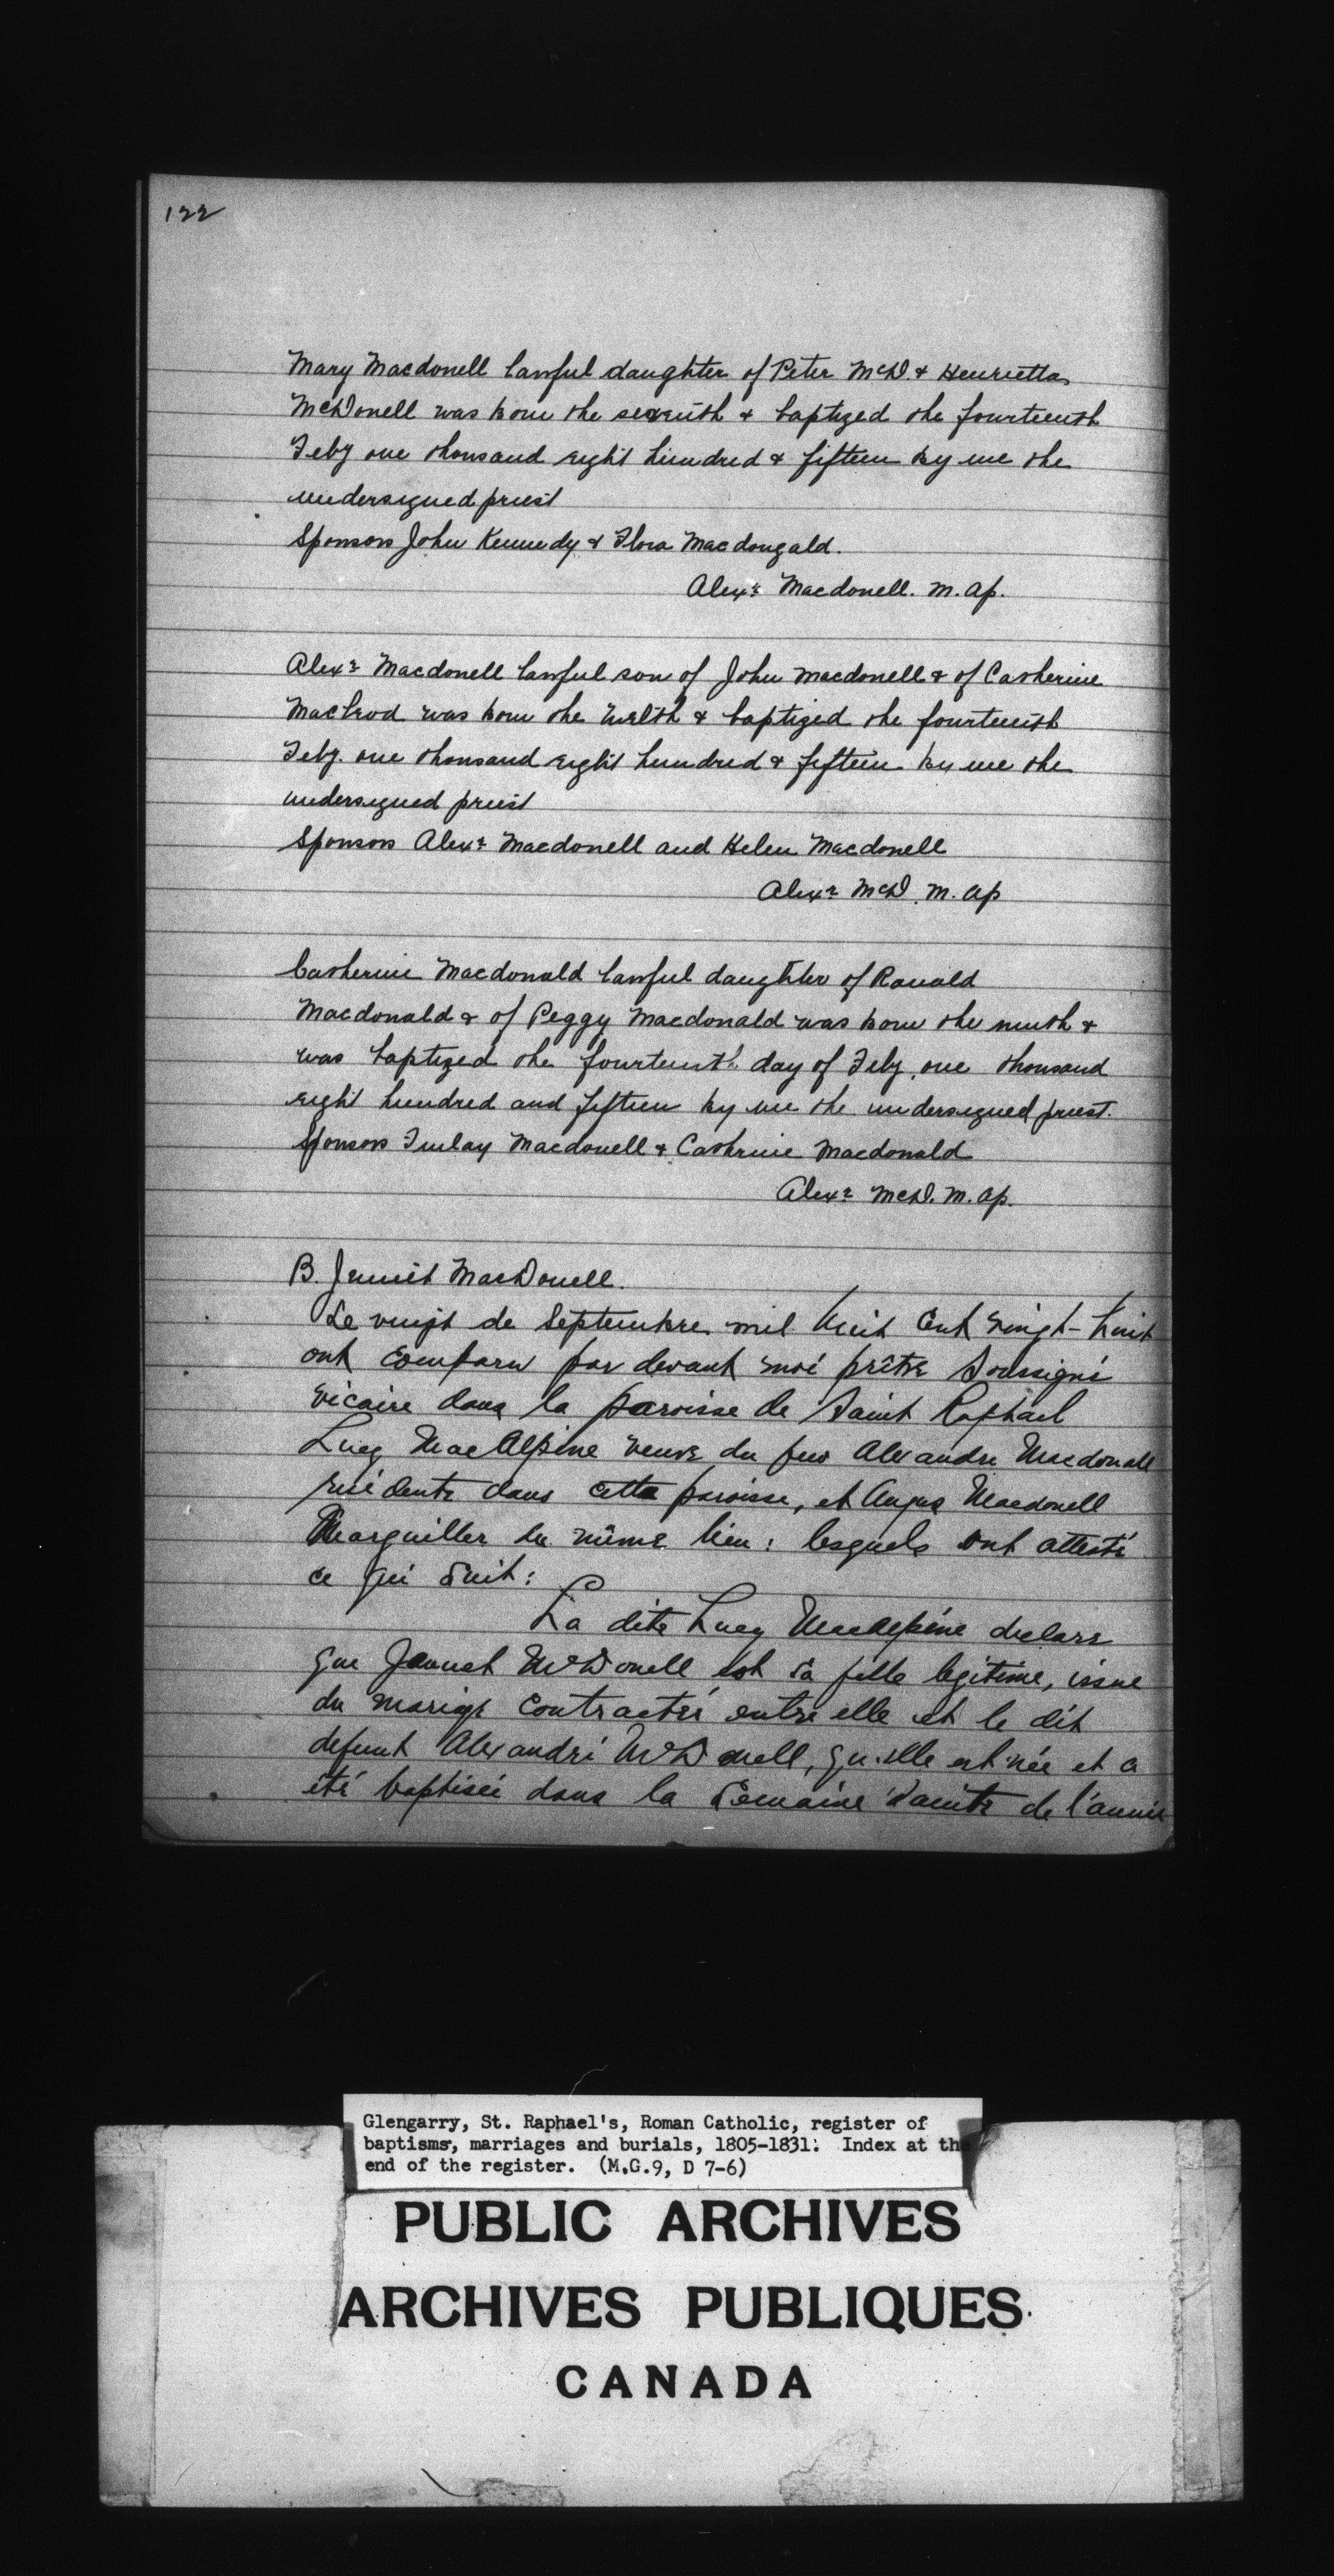 122
Mary Macdonell lawful daughter of Peter McD. & Henrietta
McDonell was born the seventh & baptized the fourteenth
Feby one thousand eight hundred & fifteen by me the
undersigned priest
Sponsors John Kennedy & Flora Macdougald.
Alexr Macdonell. M. Ap.
Alexr Macdonell lawful son of John Macdonell & of Catherine
MacLeod was born the twelth & baptized the fourteenth
Feby. one thousand eight hundred & fifteen by me the
undersigned priest
Sponsors Alexr Macdonell and Helen Macdonell
Alexr McD. M. Ap
Catherine Macdonald lawful daughter of Ranald
Macdonald & of Peggy Macdonald was born the ninth &
was baptized the fourteenth day of Feby. one thousand
eight hundred and fifteen by me the undersigned priest.
Sponsors Finlay Macdonell & Cathrine Macdonald
Alexr McD. M. Ap.
B. Jennet MacDonell.
Le vingt de Septembre mil huit Cent vingt-huit
ont comparu par devant moi prêtre Soussigné
vicaire dans la paroisse de Saint Raphael
Lucy MacAlpine veuve du feu Alexandre Macdonell
résidente dans cette paroisse, et Angus Macdonell
Marguiller du même lieu: lesquels ont attesté
ce qui Suit:
La dite Lucy MacAlpine declare
que Jannet McDonell est Sa fille legitime, issue
du mariage Contracté entre elle et le dit
defunt Alexandre McDonell, qu'elle est née et a
été baptisée dans la Semaine Sainte de l'année
Glengarry, St. Raphael's, Roman Catholic, register of
baptisms, marriages and burials, 1805-1831. Index at the
end of the register. (M.G.9, D 7-6)
PUBLIC ARCHIVES
ARCHIVES PUBLIQUES
CANADA